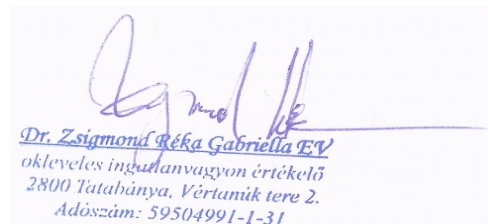 Dr. Zsigmond Réka Gabriella EV
okleveles ingatlanvagyon értékelő
2800 Tatabánya, Vértanúk tere 2.
Adószám: 59504991-1-31